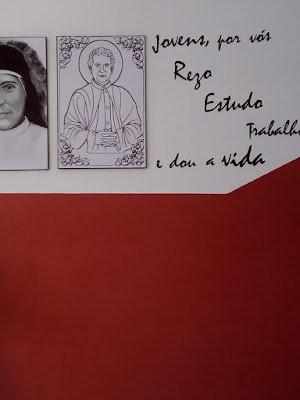 Jovens, por vós
Rezo
Estudo
Trabalho
e dou a vida